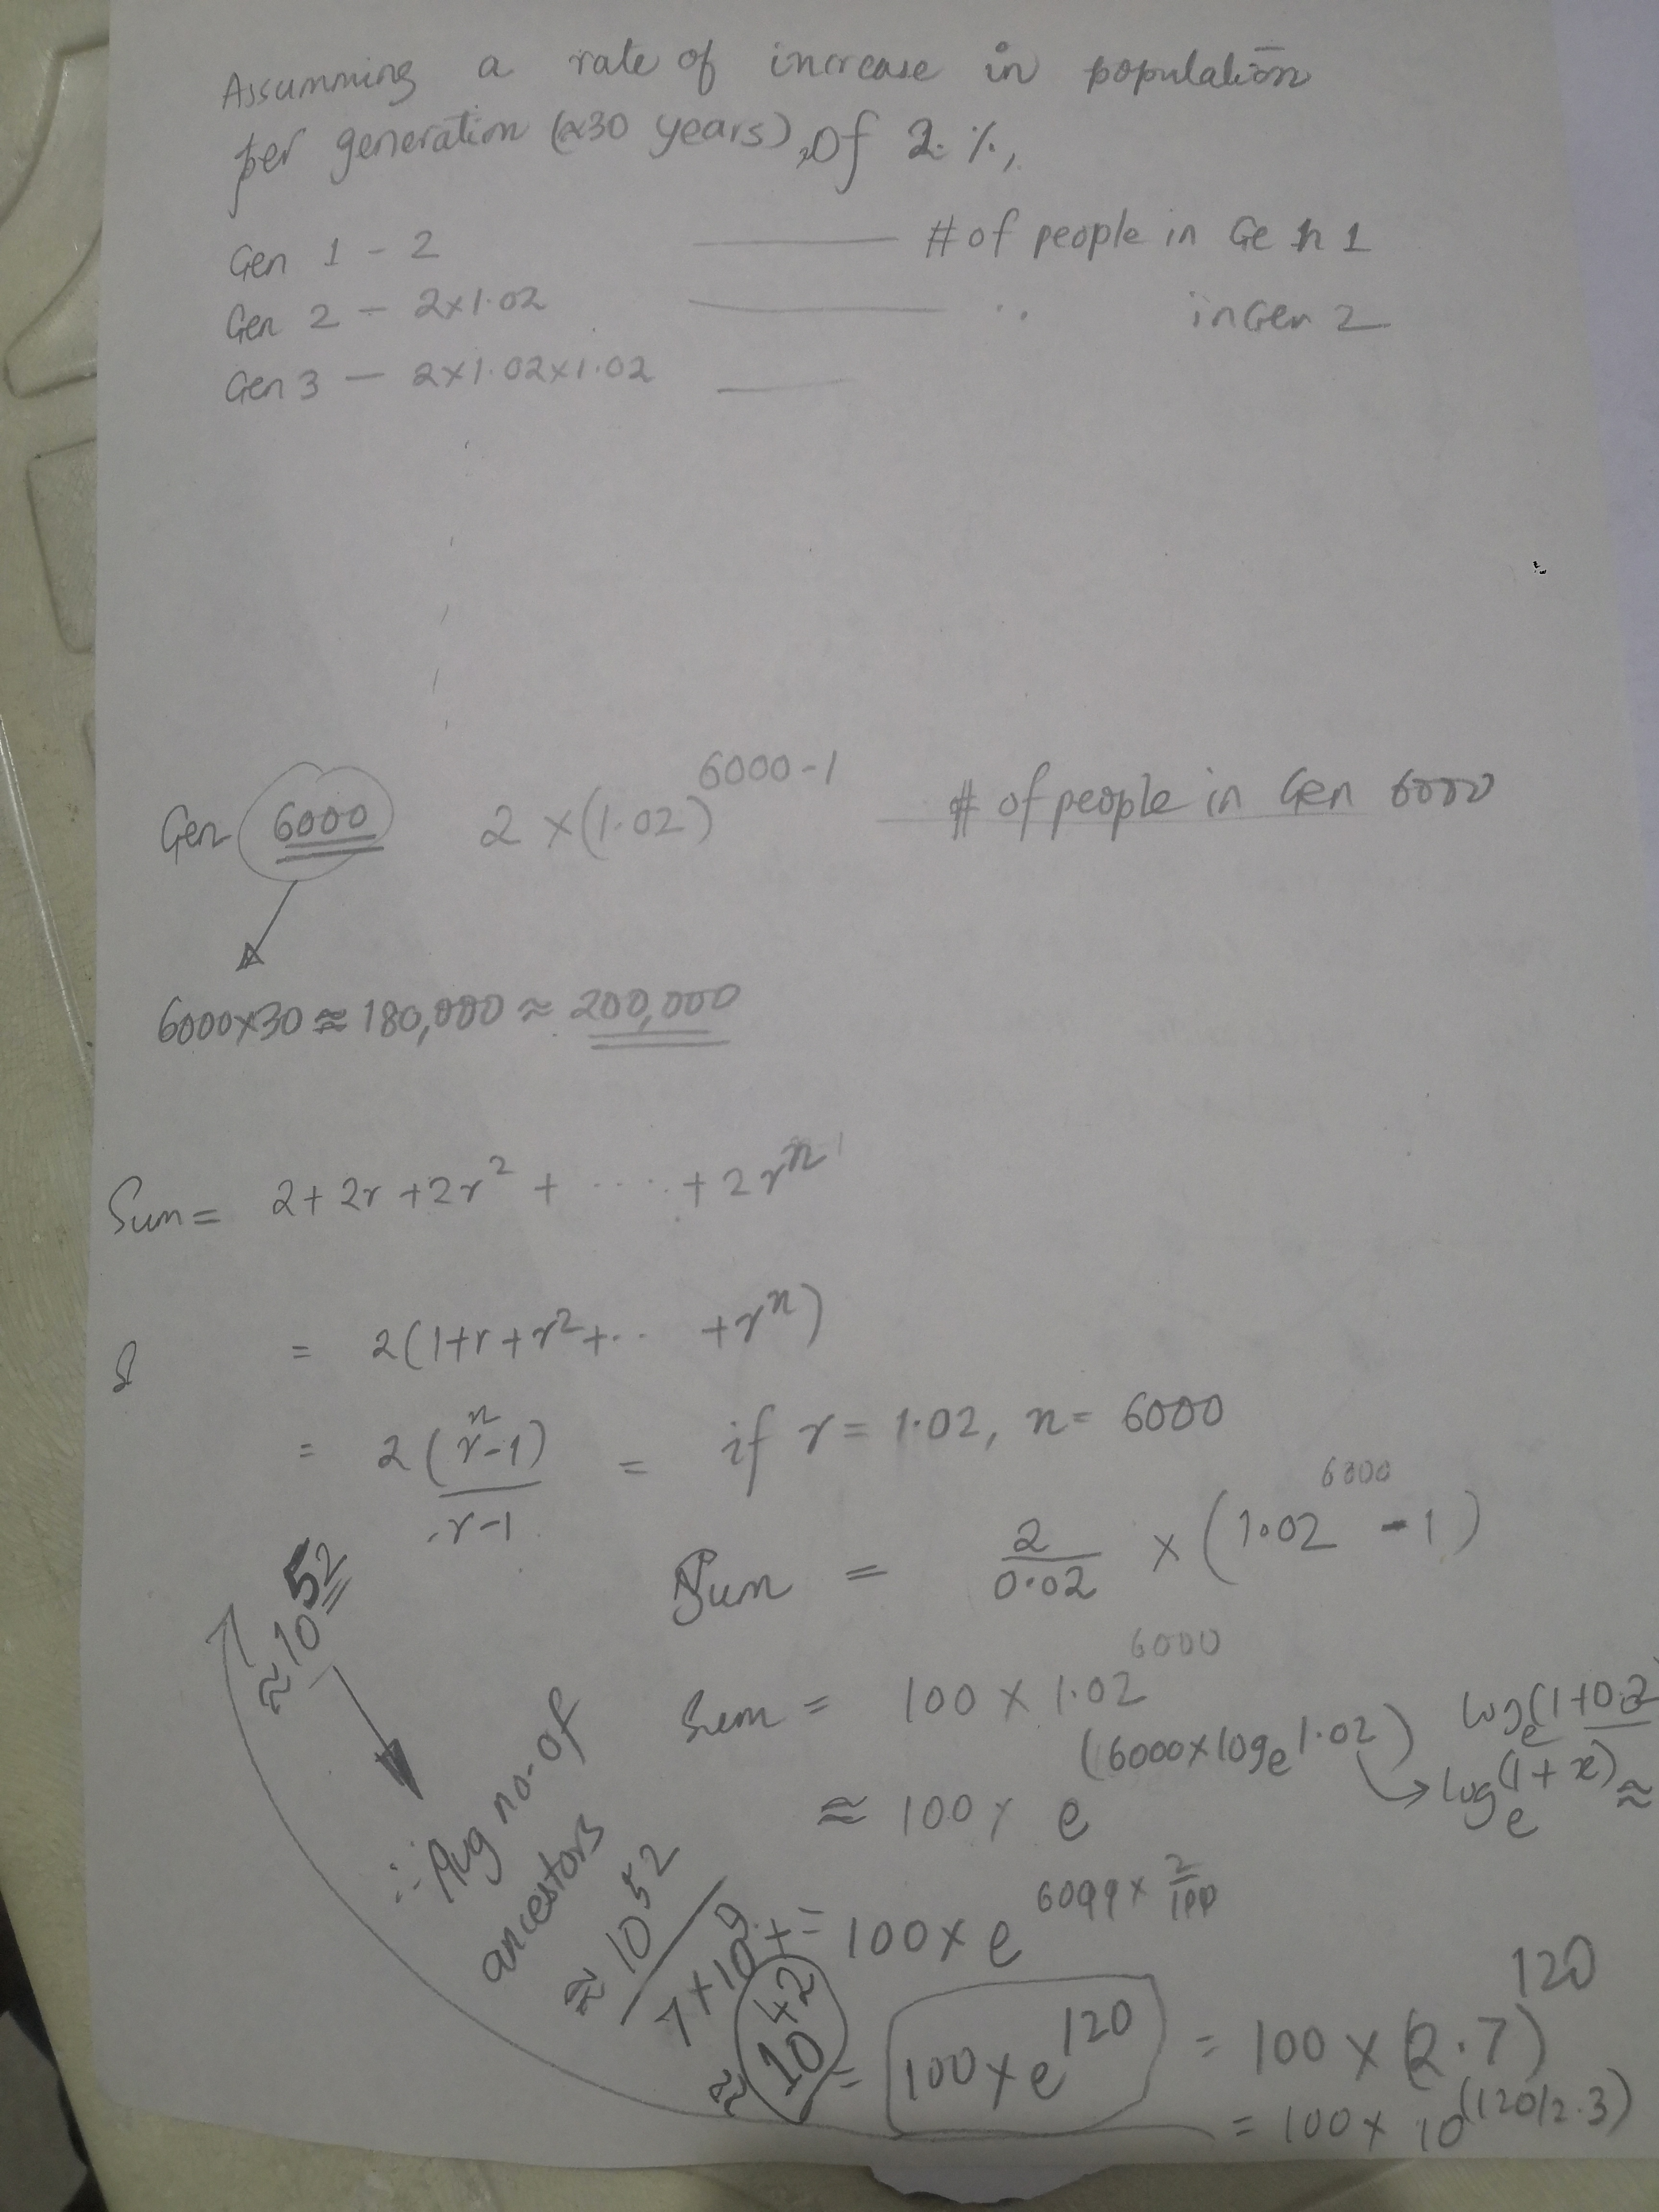 Assumming a rate of increase in population
per generation (≈30 years), of 2 %,
Gen 1 - 2 —— # of people in Gen 1
Gen 2 - 2×1.02 —— " in Gen 2
Gen 3 — 2×1.02×1.02 ——
Gen 6000 2 ×(1.02)^6000-1 — # of people in Gen 6000
6000×30 ≈ 180,000 ≈ 200,000
Sum = 2 + 2r + 2r^2 + ..... + 2r^n-1
= 2(1+r+r^2+.. +r^n)
= 2(r^n-1)/r-1 = if r = 1.02, n = 6000
Sum = 2/0.02 × (1.02^6000 - 1)
Sum = 100 × 1.02^6000
≈ 100 × e^(6000×log_e 1.02) → log_e(1+x) ≈
= 100 × e^× 2/100
= 100 × e^120 = 100 × (2.7)^120
= 100 × 10^(120/2.3)
≈ 10^52
∴ Avg no. of
ancestors
≈ 10^52 / 7×10^9
≈ 10^42